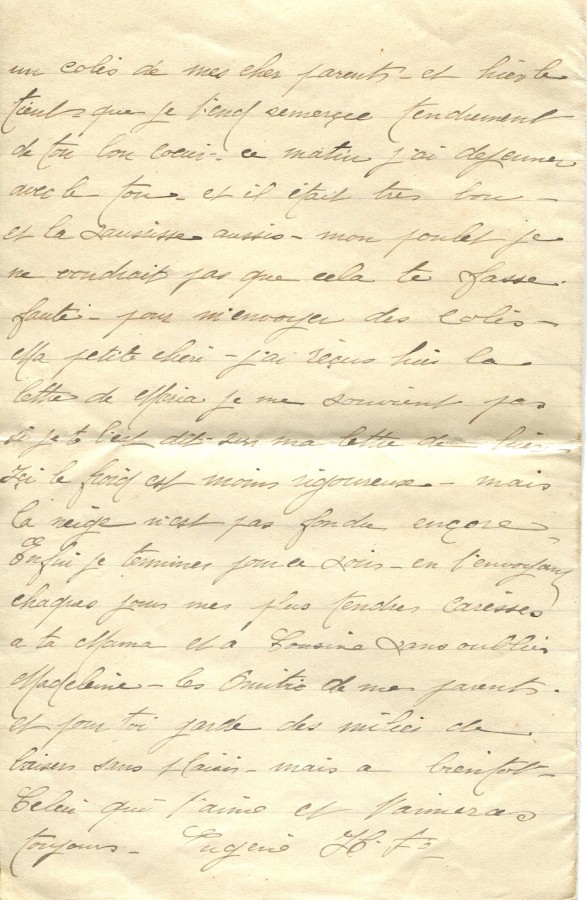 un colis de mes cher parents - et hier le
tient - que je t'end remerçee tendrement
de ton bon coeur - ce matin j'ai dejeuner
avec le ton - et il était tres bon -
et la sausisse aussis - mon poulet je
ne voudrait pas que cela te fasse
faute - pour m'envoyer des colis -
Ma petite cheri - j'ai reçus hier la
lettre de Maria je me souvient pas
si je te l'est dit sur ma lettre de hier
Içi le froid est moins rigoureuse - mais
la neige n'est pas fondu ençore,
Enfin je termines pour ce soir - en t'envoyant
chaques jours mes plus tendres caresses
a ta Mama et a Cousine sans oublier
Madeleine - les de mes parents.
et pour toi garde des milies de
baisers sans plaisir - mais a bientot -
Celui qui t'aime et t'aimeras
toujours - Eugene